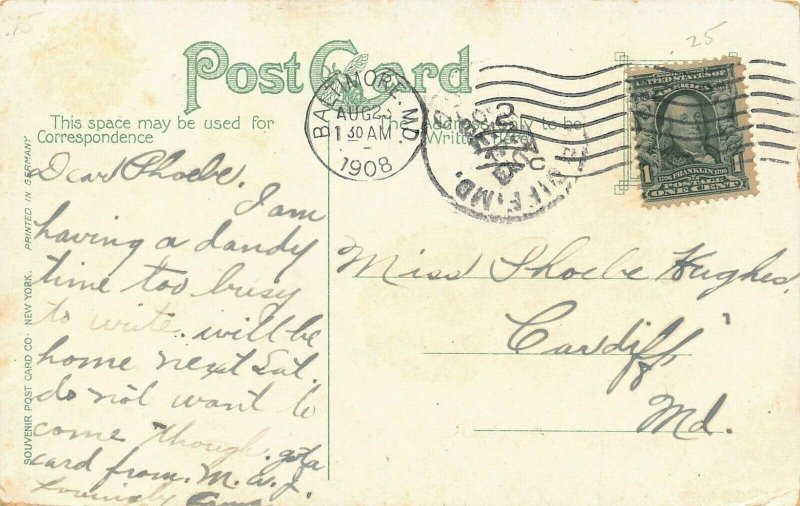 15
25
Post Card
This space may be used for
Correspondence
BALTIMORE, MD.
AUG 23
1 30 AM
1908
CARDIFF, MD.
UNITED STATES OF
AMERICA
1
1
FRANKLIN
POSTAGE
ONE CENT
Dear Phoebe. I am
having a dandy
time too busy
to write. will be
home next Sat.
do not want to
come though. got a
card from. M. W. J.
Lovingly
Miss Phoebe Hughes,
Cardiff
Md.
SOUVENIR POST CARD CO. NEW YORK. PRINTED IN GERMANY